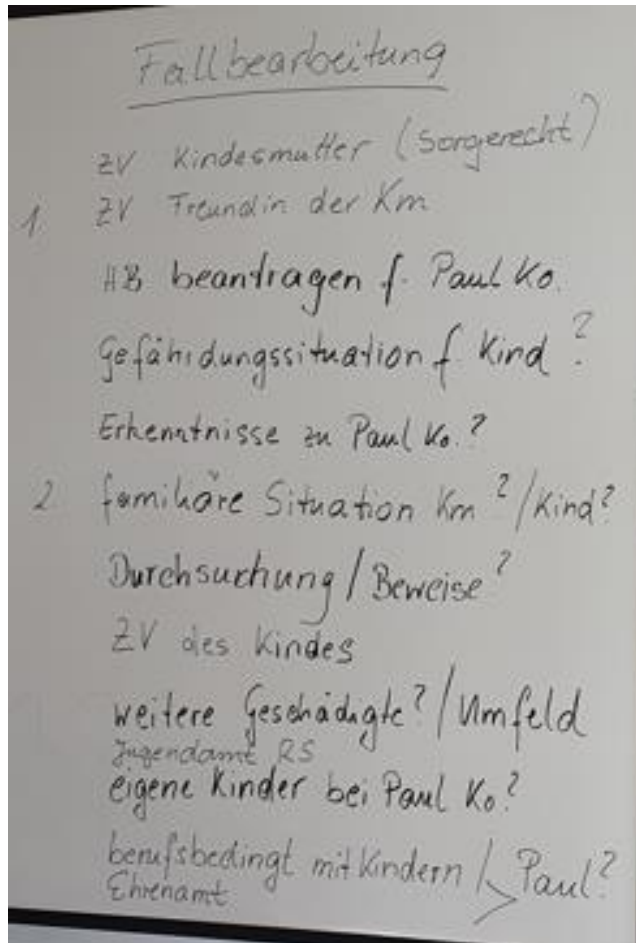 Fallbearbeitung
ZV Kindesmutter (Sorgerecht)
1. ZV Freundin der Km
HB beantragen f. Paul Ko.
Gefährdungssituation f Kind?
Erkenntnisse zu Paul Ko.?
2 familiäre Situation Km?/Kind?
Durchsuchung/Beweise?
ZV des Kindes
weitere Geschädigte?/Umfeld
Jugendamt RS
eigene Kinder bei Paul Ko?
berufsbedingt mit Kindern / > Paul?
Ehrenamt